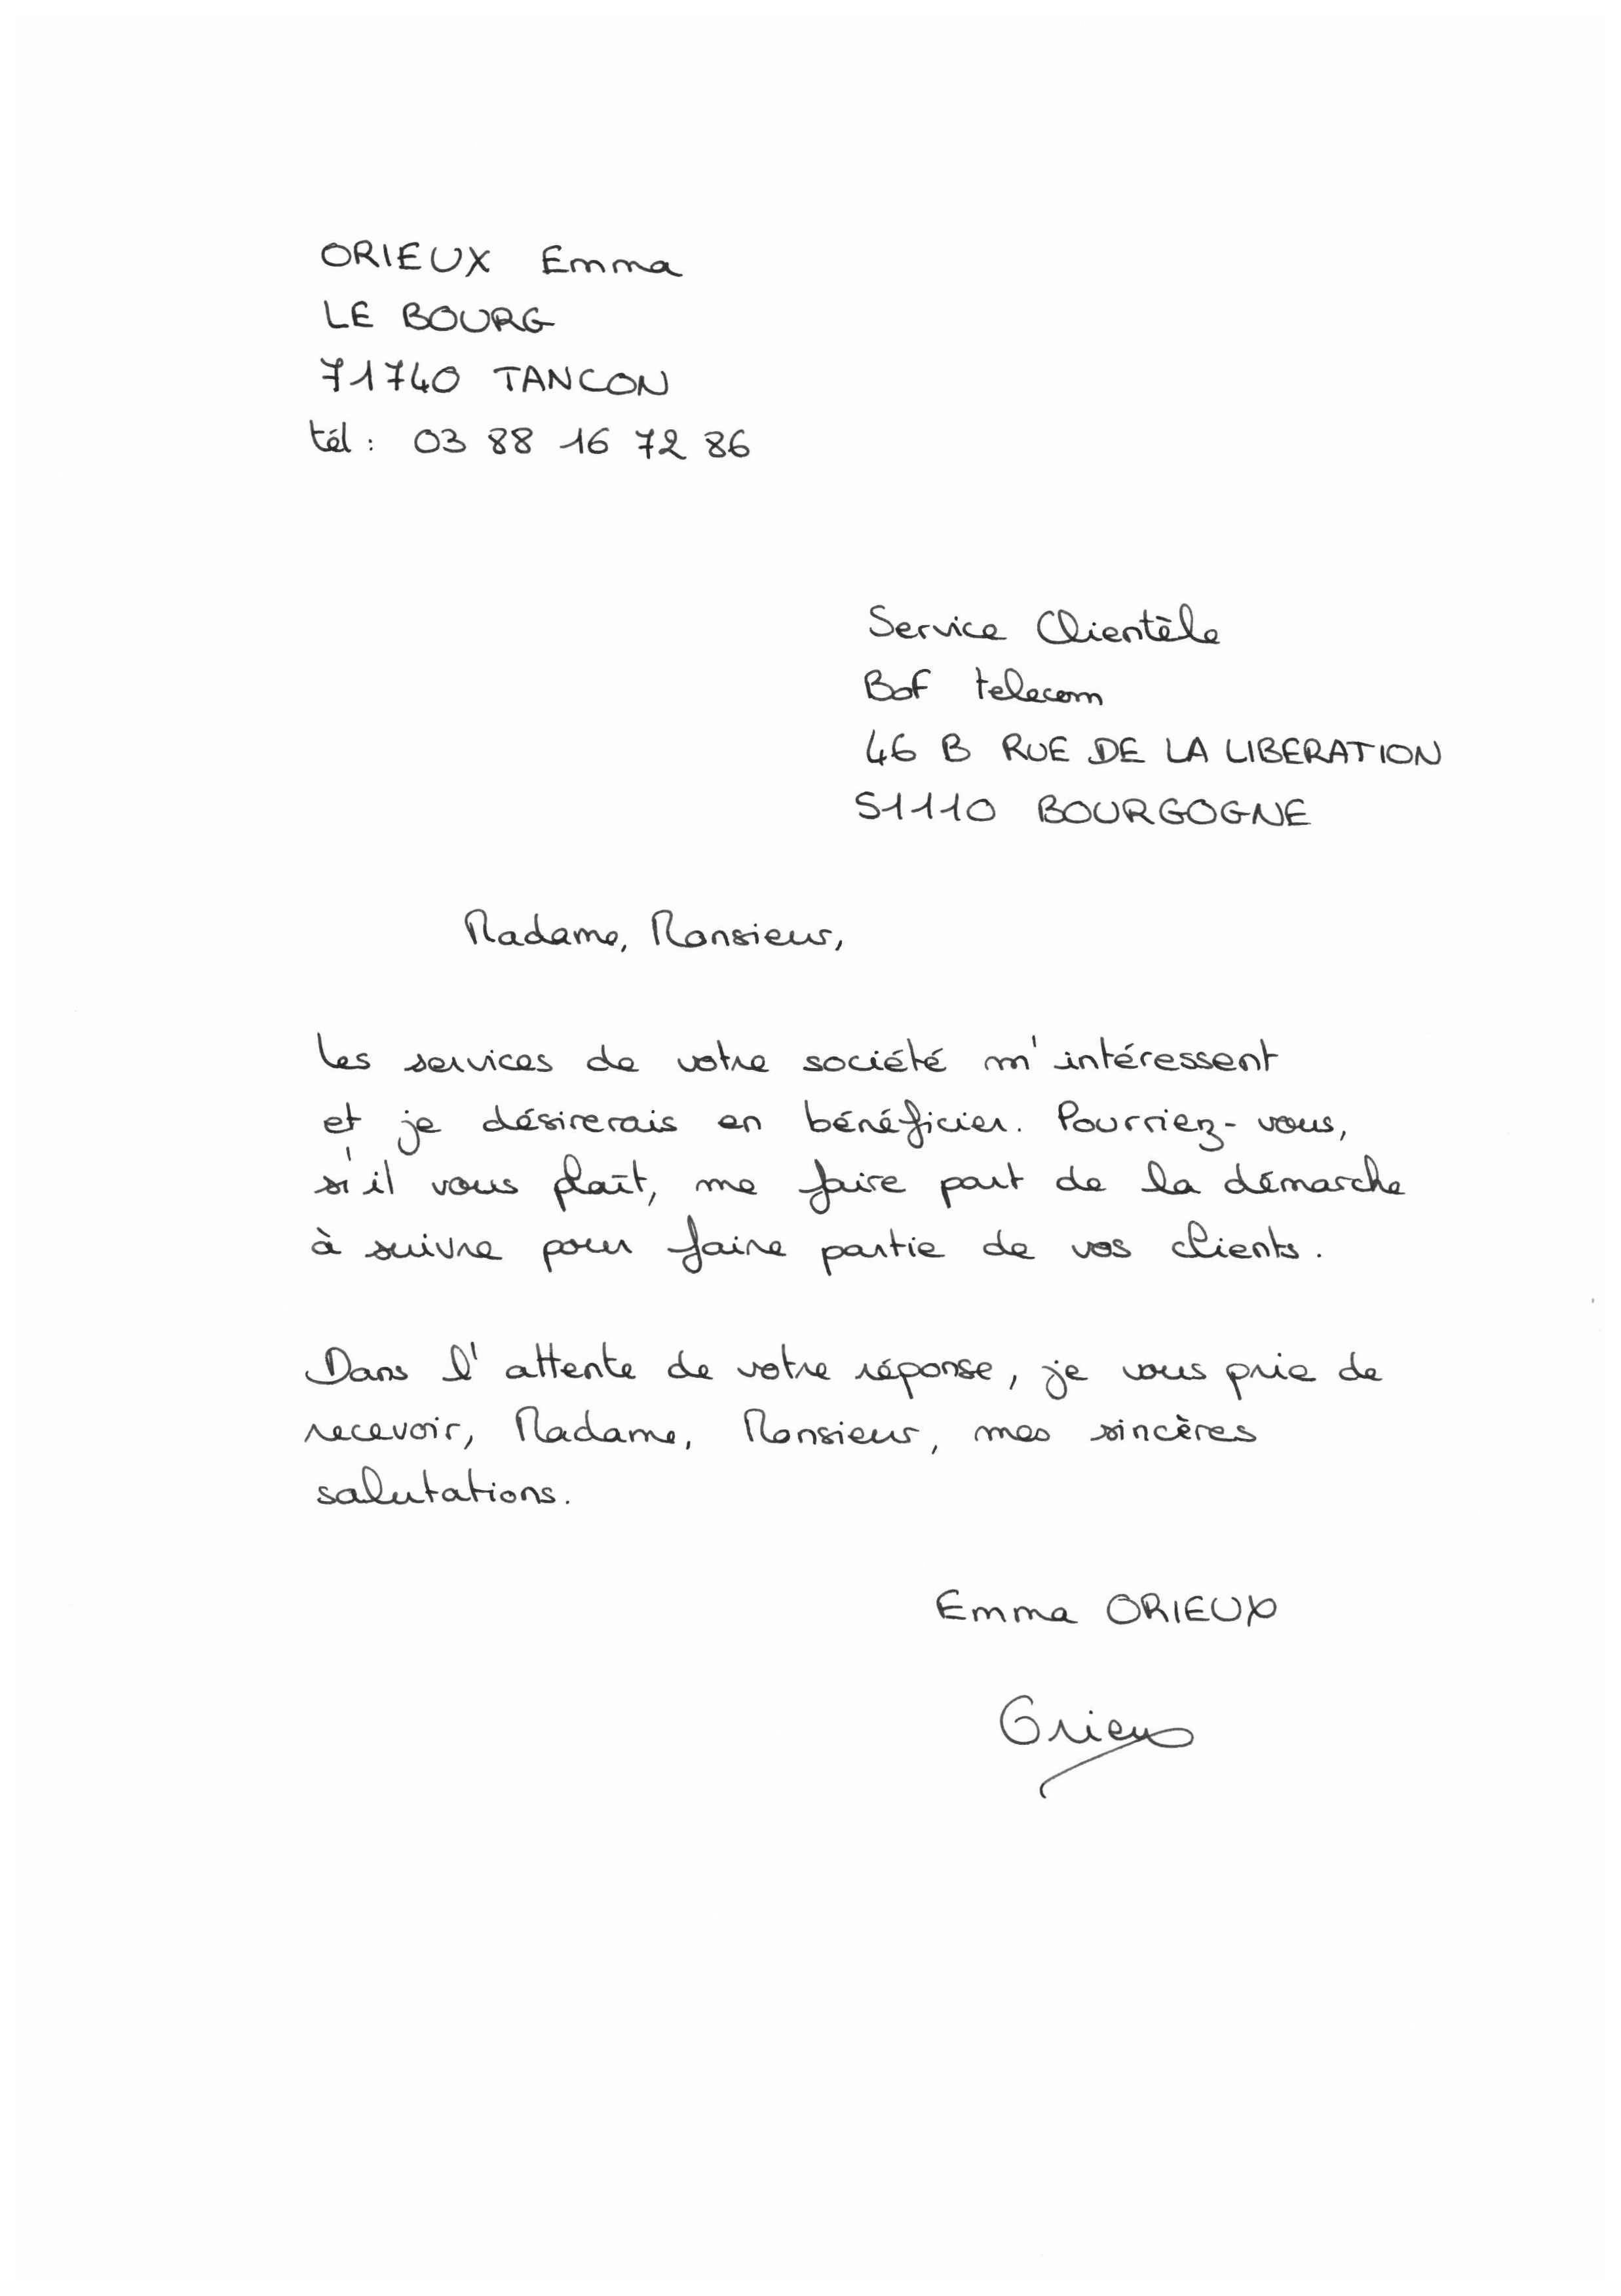 ORIEUX Emma
LE BOURG
71740 TANCON
tél : 03 88 16 72 86
Service Clientèle
Bof telecom
46 B RUE DE LA LIBERATION
51110 BOURGOGNE
Madame, Monsieur,
Les services de votre société m'intéressent
et je désirerais en bénéficier. Pourriez-vous,
s'il vous plaît, me faire part de la démarche
à suivre pour faire partie de vos clients.
Dans l'attente de votre réponse, je vous prie de
recevoir, Madame, Monsieur, mes sincères
salutations.
Emma ORIEUX
Orieux